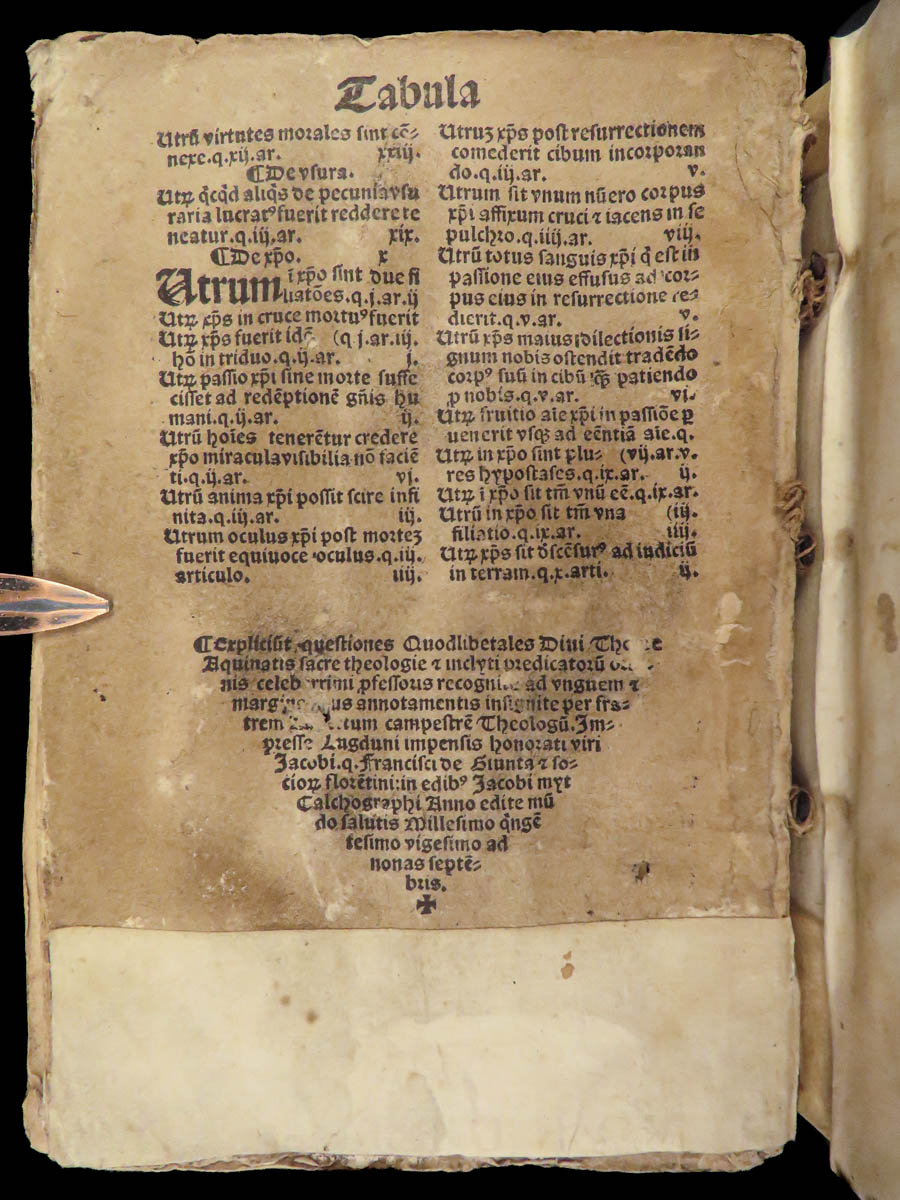 Tabula
Utrũ virtutes morales sint cõ-
nexe.q.xij.ar. xxiij.
¶De vsura.
Utꝝ q̃cqd aliq̃s de pecunia vsu
raria lucratꝰ fuerit reddere te
neatur.q.iij.ar. xix.
¶De xp̃o. x
Utrum ĩ xp̃o sint due fi
liatões.q.j.ar.ij
Utꝝ xp̃s in cruce mortuꝰ fuerit
Utꝝ xp̃s fuerit idẽ (q j.ar.iij.
hõ in triduo.q.ij.ar. j.
Utꝝ passio xp̃i sine morte suffe
cisset ad redẽptionẽ gñis hu
mani.q.ij.ar. ij.
Utrũ hoĩes tenerẽtur credere
xp̃o miracula visibilia nõ faciẽ
ti.q.ij.ar. vj.
Utrũ anima xp̃i possit scire infi
nita.q.iij.ar. iij.
Utrum oculus xp̃i post morteꝫ
fuerit equiuoce oculus.q.iij.
articulo. iiij.
Utruꝫ xp̃s post resurrectionem
comederit cibum incorporan
do.q.iij.ar. v.
Utrum sit vnum nũero corpus
xp̃i affixum cruci ⁊ iacens in se
pulchro.q.iiij.ar. viij.
Utrũ totus sanguis xp̃i q̃ est in
passione eius effusus ad cor-
pus eius in resurrectione re-
dierit.q.v.ar. v.
Utrũ xp̃s maius dilectionis si-
gnum nobis ostendit tradẽdo
corpꝰ suũ in cibũ q̃ꝫ patiendo
ꝓ nobis.q.v.ar. vj.
Utꝝ fruitio aĩe xp̃i in passiõe ꝑ
uenerit vsqꝫ ad eẽntiã aĩe.q.
Utꝝ in xp̃o sint plu- (vij.ar.v.
res hypostases.q.ix.ar. ij.
Utꝝ ĩ xp̃o sit tm̃ vnũ eẽ.q.ix.ar.
Utrũ in xp̃o sit tm̃ vna (iij.
filiatio.q.ix.ar. iiij.
Utꝝ xp̃s sit dscẽsurꝰ ad iudiciũ
in terram.q.x.arti. ij.
¶Expliciũt questiones Quodlibetales Diui
Aquinatis sacre theologie ⁊ inclyti predicatorũ
nis ꝓfessoris ad vnguem ⁊
annotamentis insignite per fra-
trem campestrẽ Theologũ.Im-
presse Lugduni impensis honorati viri
Jacobi.q.Francisci de Giunta ⁊ so-
cioꝝ florẽtini:in edibꝰ Jacobi myt
Calchographi Anno edite mũ
do salutis Millesimo q̃ngẽ
tesimo vigesimo ad
nonas septẽ-
bris.